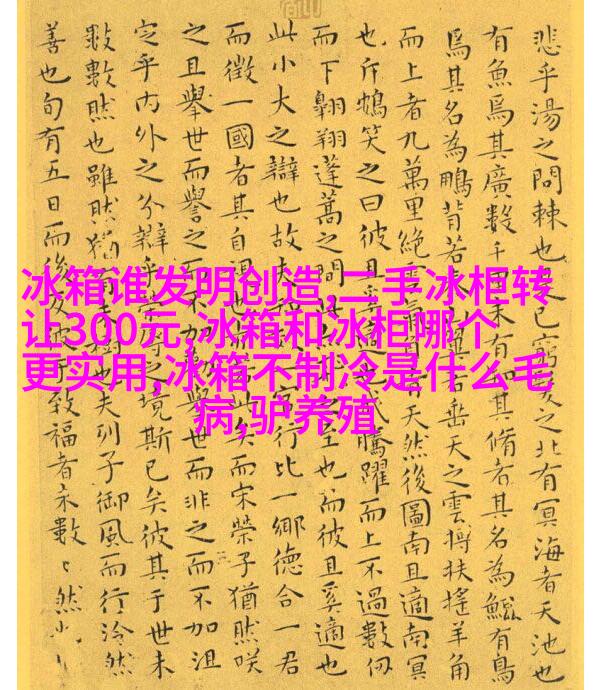 冰箱谁发明创造,二手冰柜转
让300元,冰箱和冰柜哪个
更实用,冰箱不制冷是什么毛
病,驴养殖
悲乎湯之問棘也是已之北有冥海者天池也
有魚焉其廣數千未有其脩者其名為鯤有鳥
焉其名為鵬背若垂天之雲摶扶搖羊角
而上者九萬里絕雲天然後圖南且適南冥
也斥鴳笑之曰彼且騰躍而上不過數仞
而下翱翔蓬蒿之間之至也而彼且奚適也
此小大之辯也故官行比一鄉德合一君
而徵一國者其自視矣而宋榮子猶然咲
之且舉世而譽之而不加舉世而非之而不加沮
定乎內外之分辯乎榮之境斯已矣彼其于世未
數數然也雖然猶有樹也夫列子御風而行泠然
善也旬有五日而後反於致福者未數〻然也